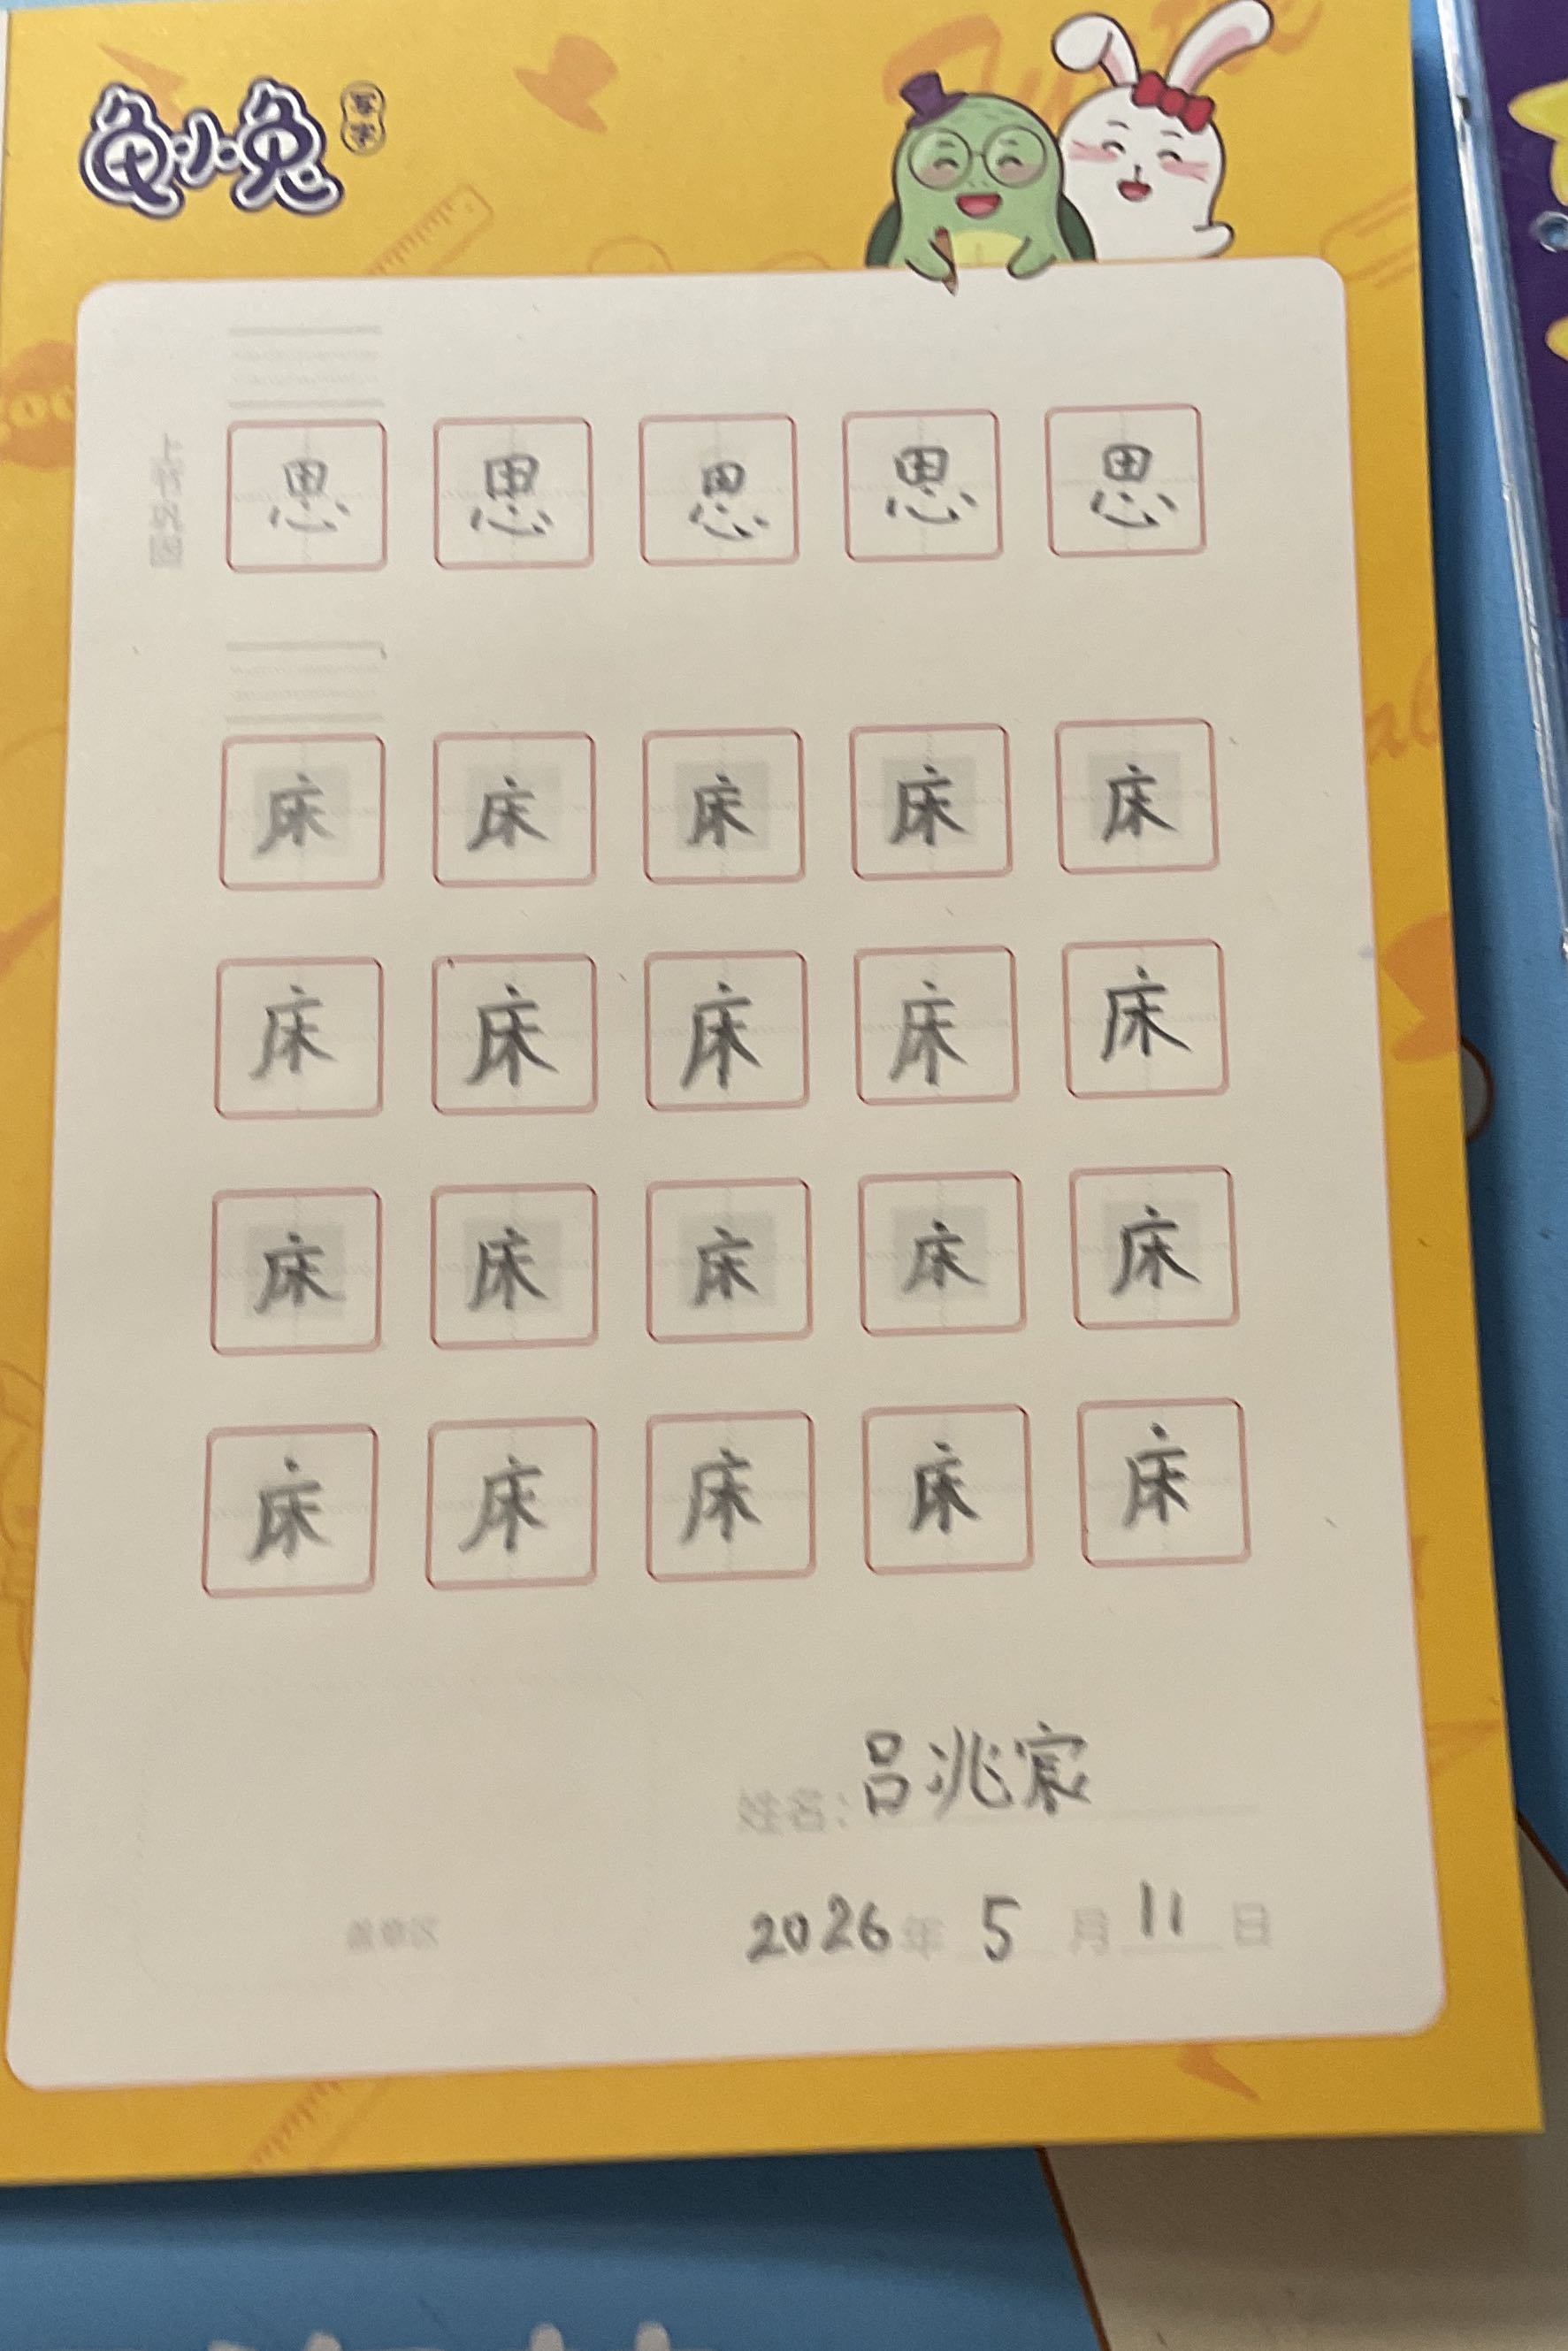 龟小兔 写字
思 思 思 思 思
床 床 床 床 床
床 床 床 床 床
床 床 床 床 床
床 床 床 床 床
姓名：吕兆宸
2026年 5月 11日
盖章区